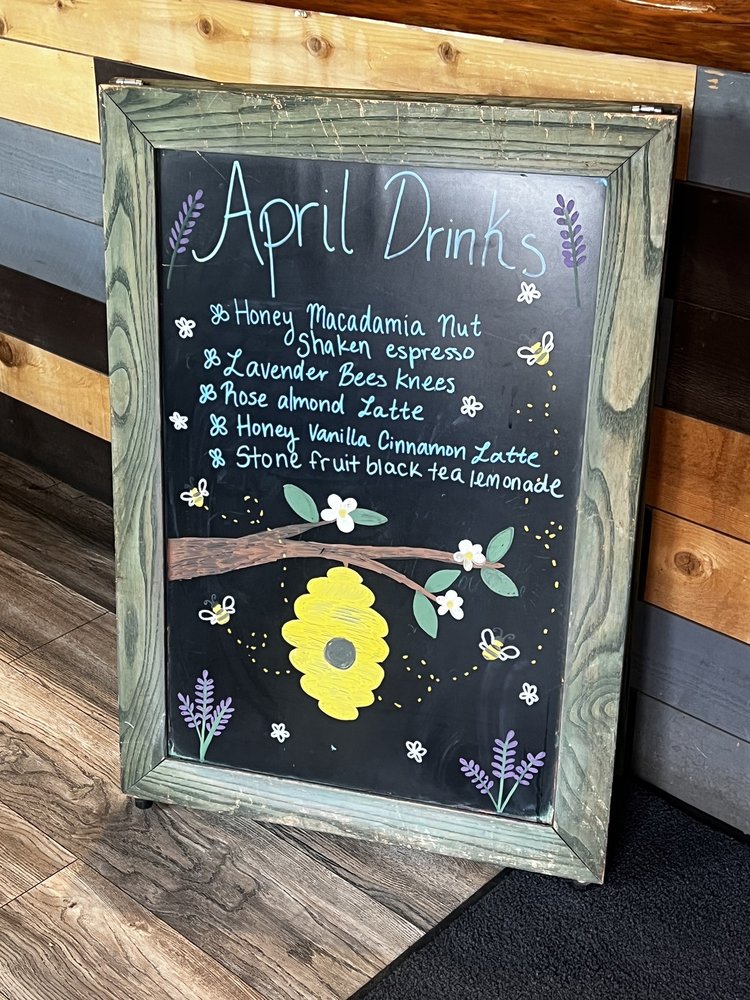 April Drinks
Honey Macadamia Nut
Shaken espresso
Lavender Bees Knees
Rose almond Latte
Honey Vanilla Cinnamon Latte
Stone fruit black tea lemonade